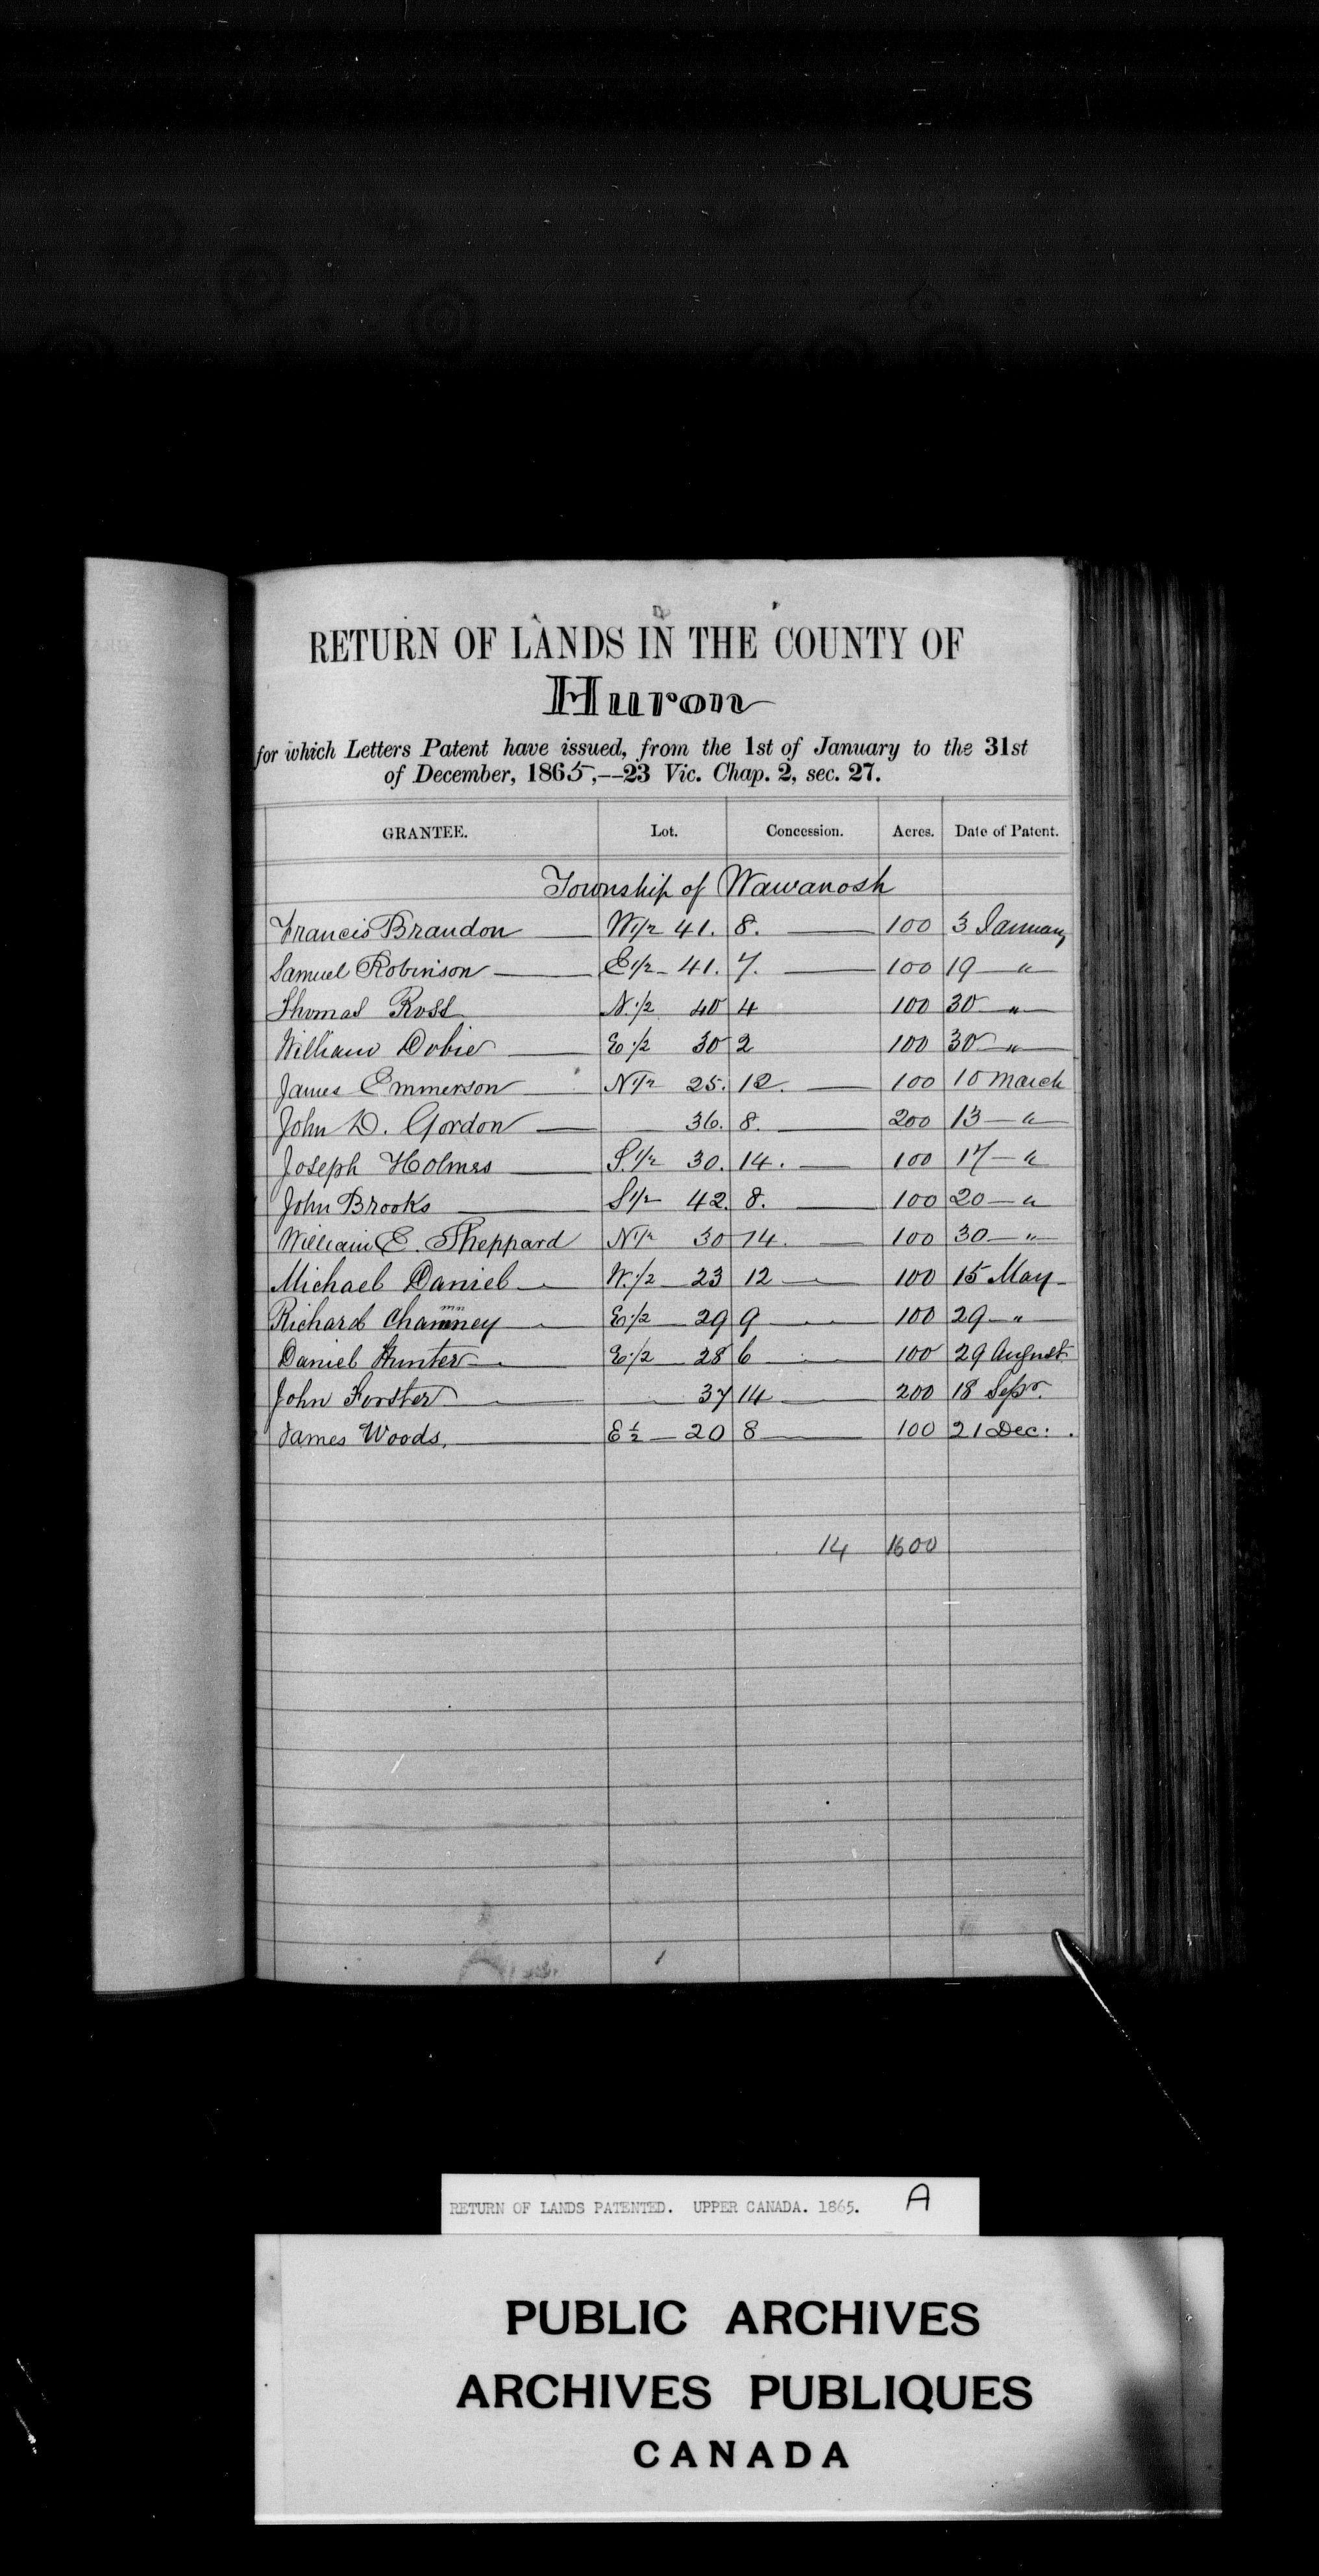 RETURN OF LANDS IN THE COUNTY OF
Huron
for which Letters Patent have issued, from the 1st of January to the 31st
of December, 1865,--23 Vic. Chap. 2, sec. 27.
GRANTEE. Lot. Concession. Acres. Date of Patent.
Township of Wawanosh
Francis Brandon W1/2 41. 8. 100 3 January
Samuel Robinson E1/2 41. 7. 100 19 "
Thomas Ross N.1/2 40 4 100 30 "
William Dobie E1/2 30 2 100 30 "
James Emmerson N1/2 25. 12. 100 10 March
John D. Gordon 36. 8. 200 13 "
Joseph Holmes S.1/2 30. 14. 100 17 "
John Brooks S1/2 42. 8. 100 20 "
William E. Sheppard N1/2 30 14. 100 30 "
Michael Daniel W.1/2 23 12 100 15 May
mn
Richard Chamney E1/2 29 9 100 29 "
Daniel Hunter E1/2 28 6 100 29 August
John Forster 37 14 200 18 Sepr.
James Woods. E 1/2 20 8 100 21 Dec.
14 1600
RETURN OF LANDS PATENTED. UPPER CANADA. 1865. A
PUBLIC ARCHIVES
ARCHIVES PUBLIQUES
CANADA